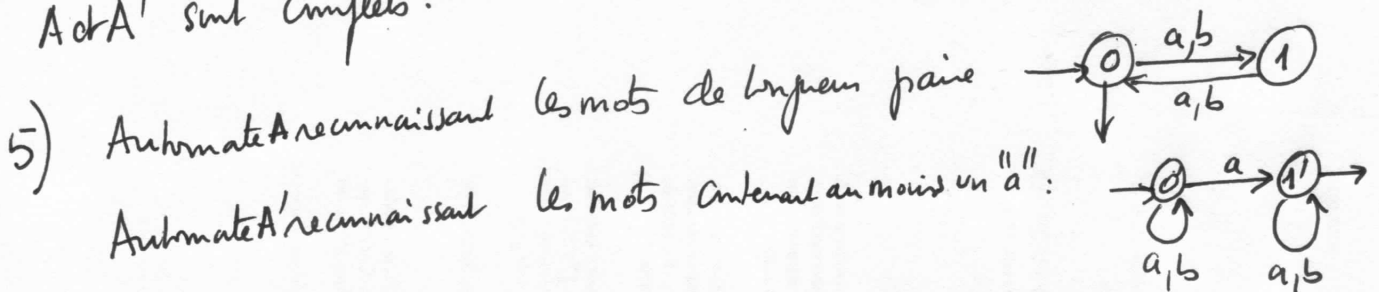 A et A' sont complets.
5) Automate A reconnaissant les mots de longueur paire
0 a,b 1
a,b
Automate A' reconnaissant les mots contenant au moins un "a" :
0' a 1'
a,b a,b